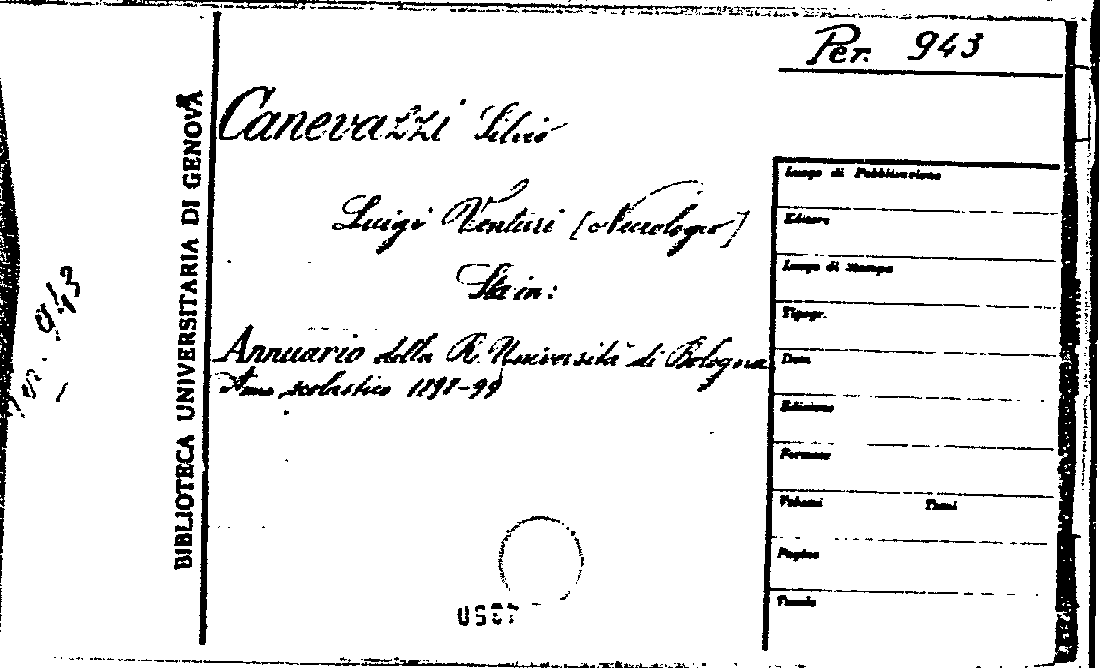 Per. 943
BIBLIOTECA UNIVERSITARIA DI GENOVA
Canevazzi Silvio
Luigi Venturi [Necrologio]
Sta in:
Annuario della R. Università di Bologna
Anno scolastico 1898-99
Luogo di Pubblicazione
Editore
Luogo di stampa
Tipogr.
Data
Edizione
Formato
Volumi Tomi
Pagine
Tavole
Per. 943